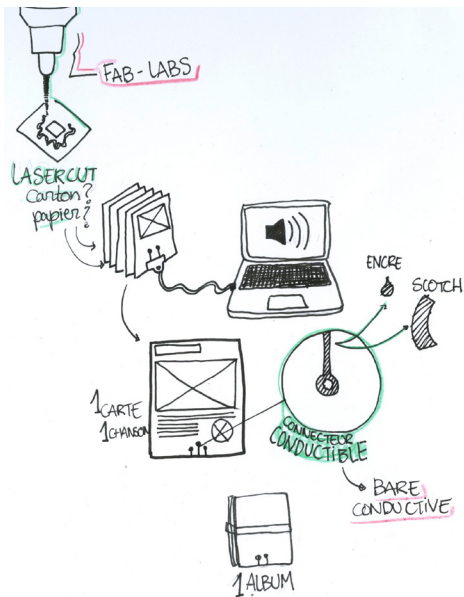 FAB-LABS
LASERCUT
Carton?
papier?
ENCRE
SCOTCH
1 CARTE
1 CHANSON
CONNECTEUR
CONDUCTIBLE
BARE
CONDUCTIVE
1 ALBUM